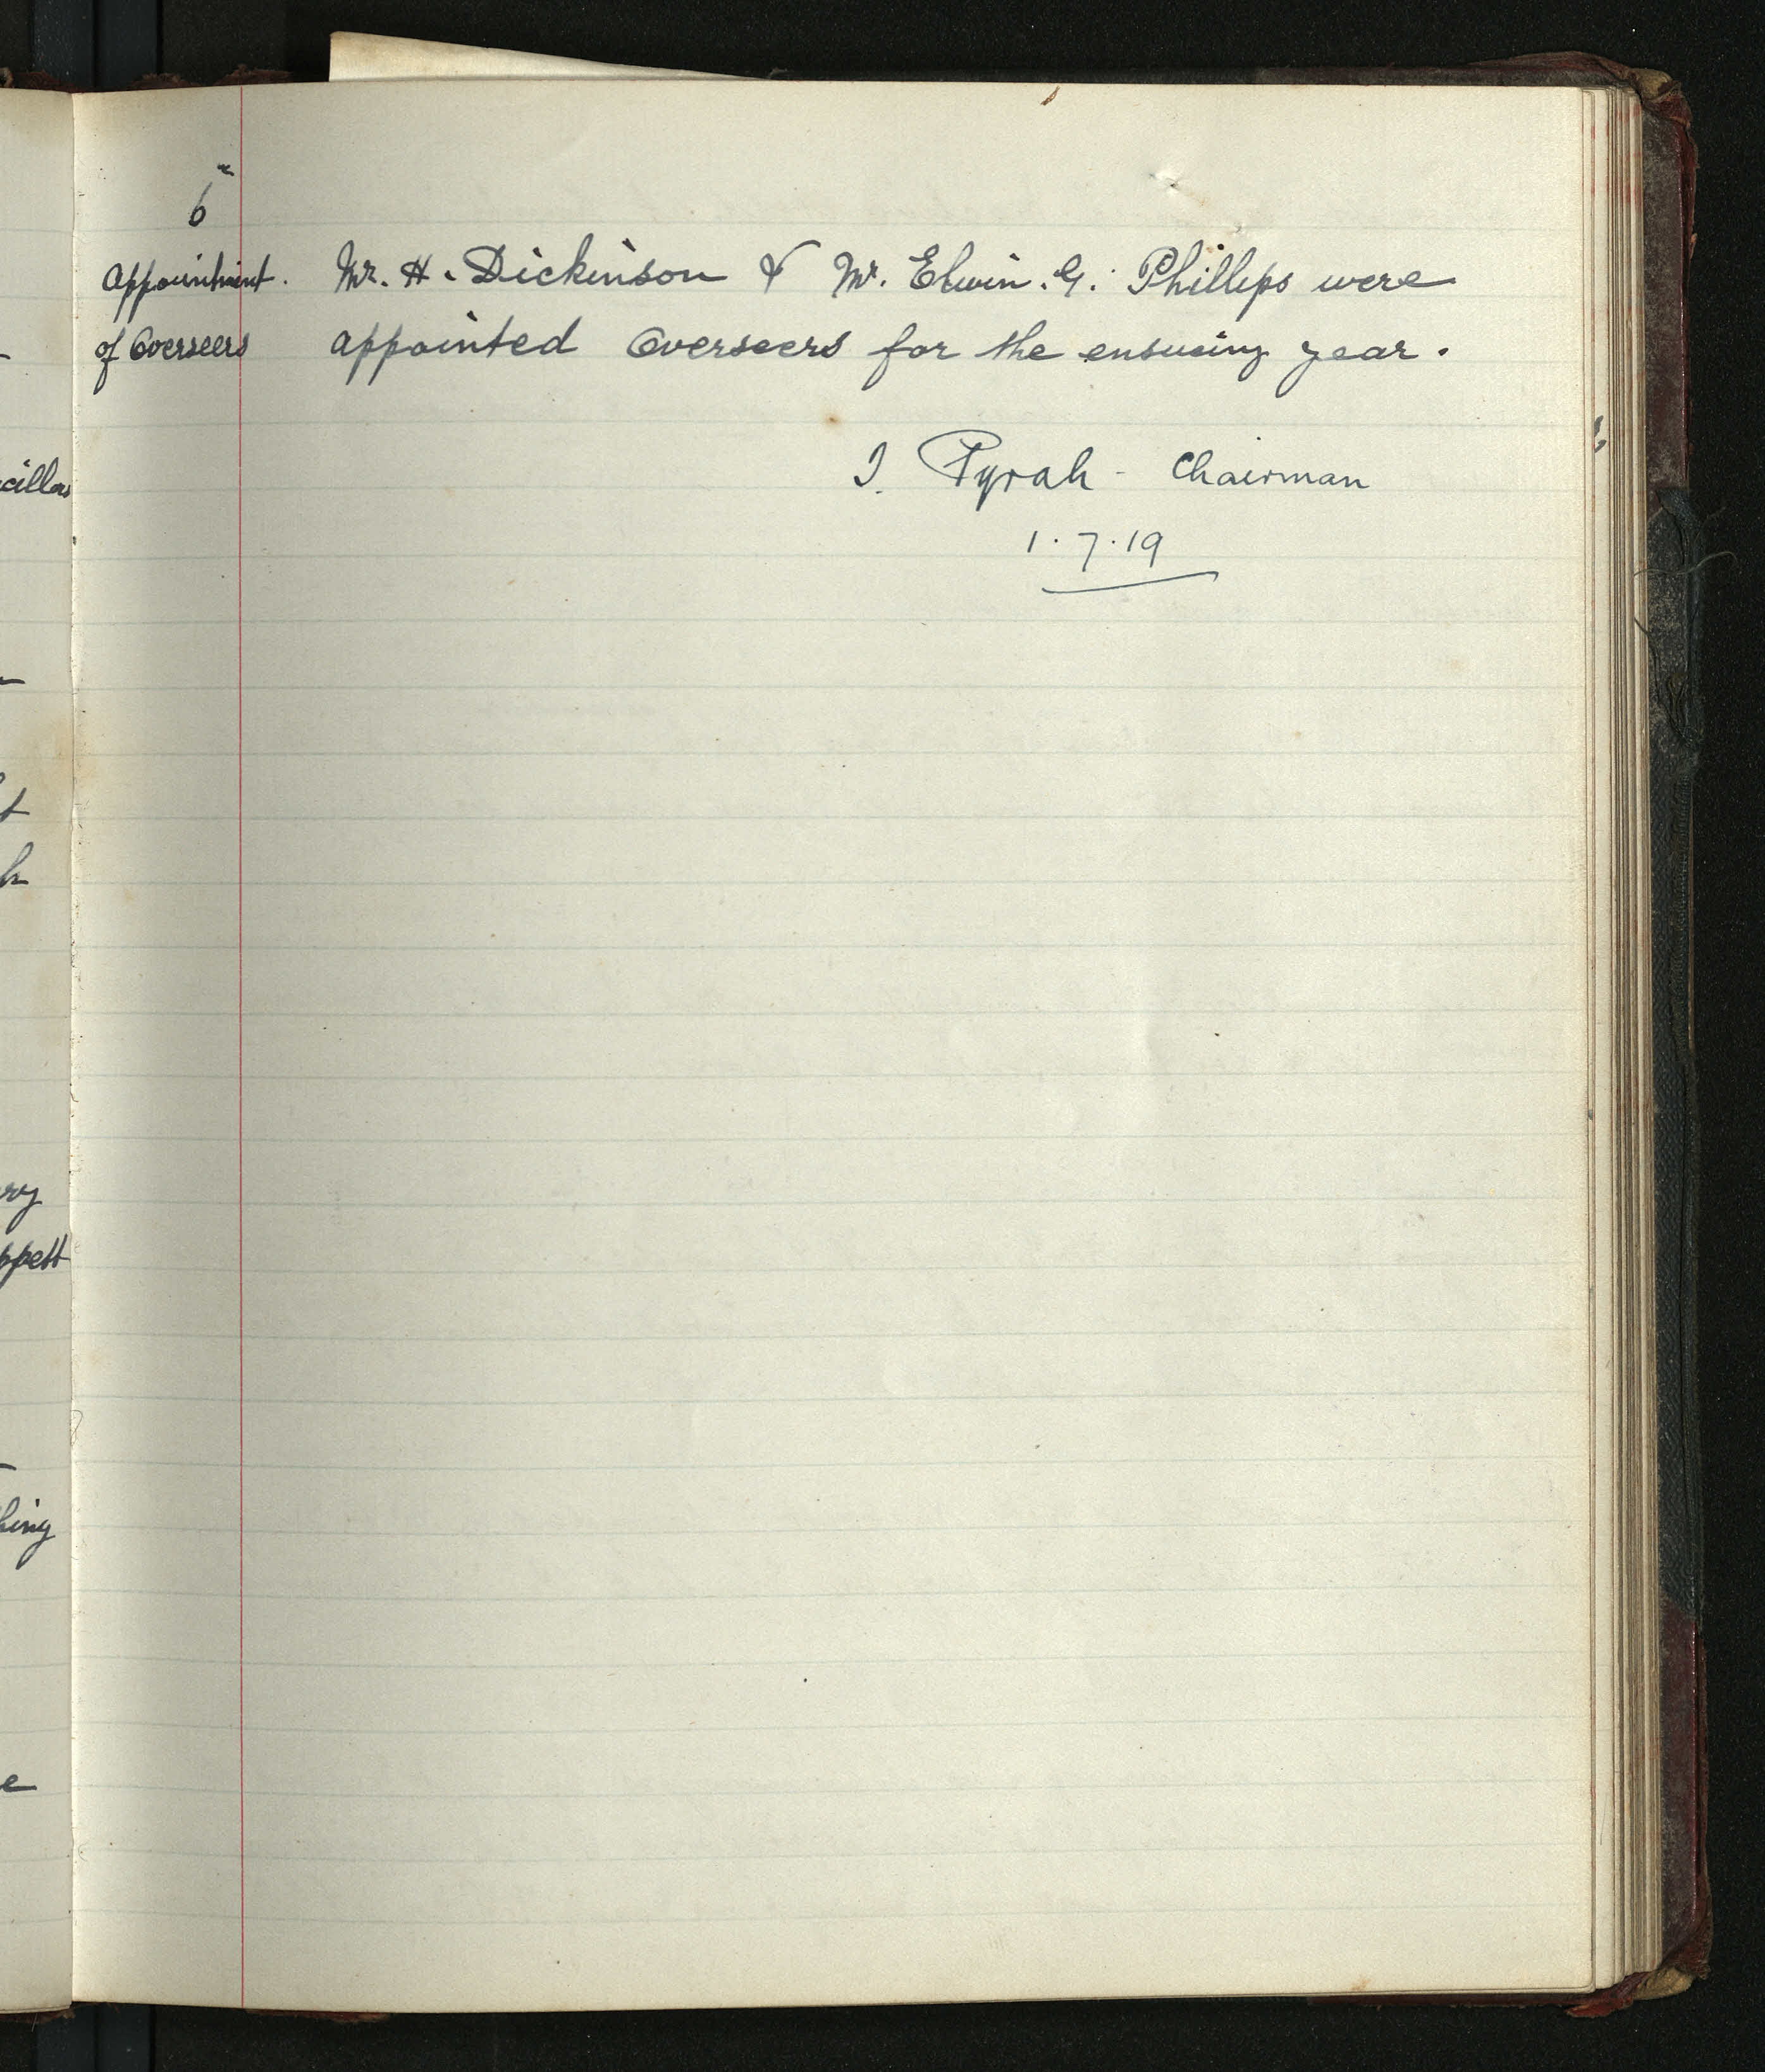 6
Appointment. Mr. H. Dickinson & Mr. Elwin. G. Phillips were
of Overseers appointed Overseers for the ensueing year.
J. Pyrah - Chairman
1.7.19
cillors
t
h
ry
ppett
hing
e